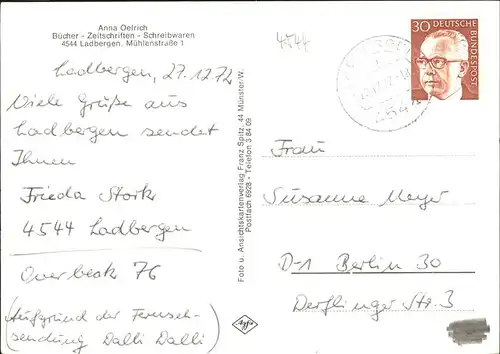 Anna Oelrich
Bücher - Zeitschriften - Schreibwaren
4544 Ladbergen, Mühlenstraße 1
4544
Ladbergen, 27.12.72
Viele Grüße aus
Ladbergen sendet
Ihnen
Frieda Stork
4544 Ladbergen
Overbeck 76
(Aufgrund der Fernseh-
sendung Dalli Dalli)
Foto u. Ansichtskartenverlag Franz Spitz, 44 Münster-W.
Postfach 6928 - Telefon 3 84 09
Agfa
30 DEUTSCHE
BUNDESPOST
Frau
Susanne Meyer
D-1 Berlin 30
Derfflinger Str. 3